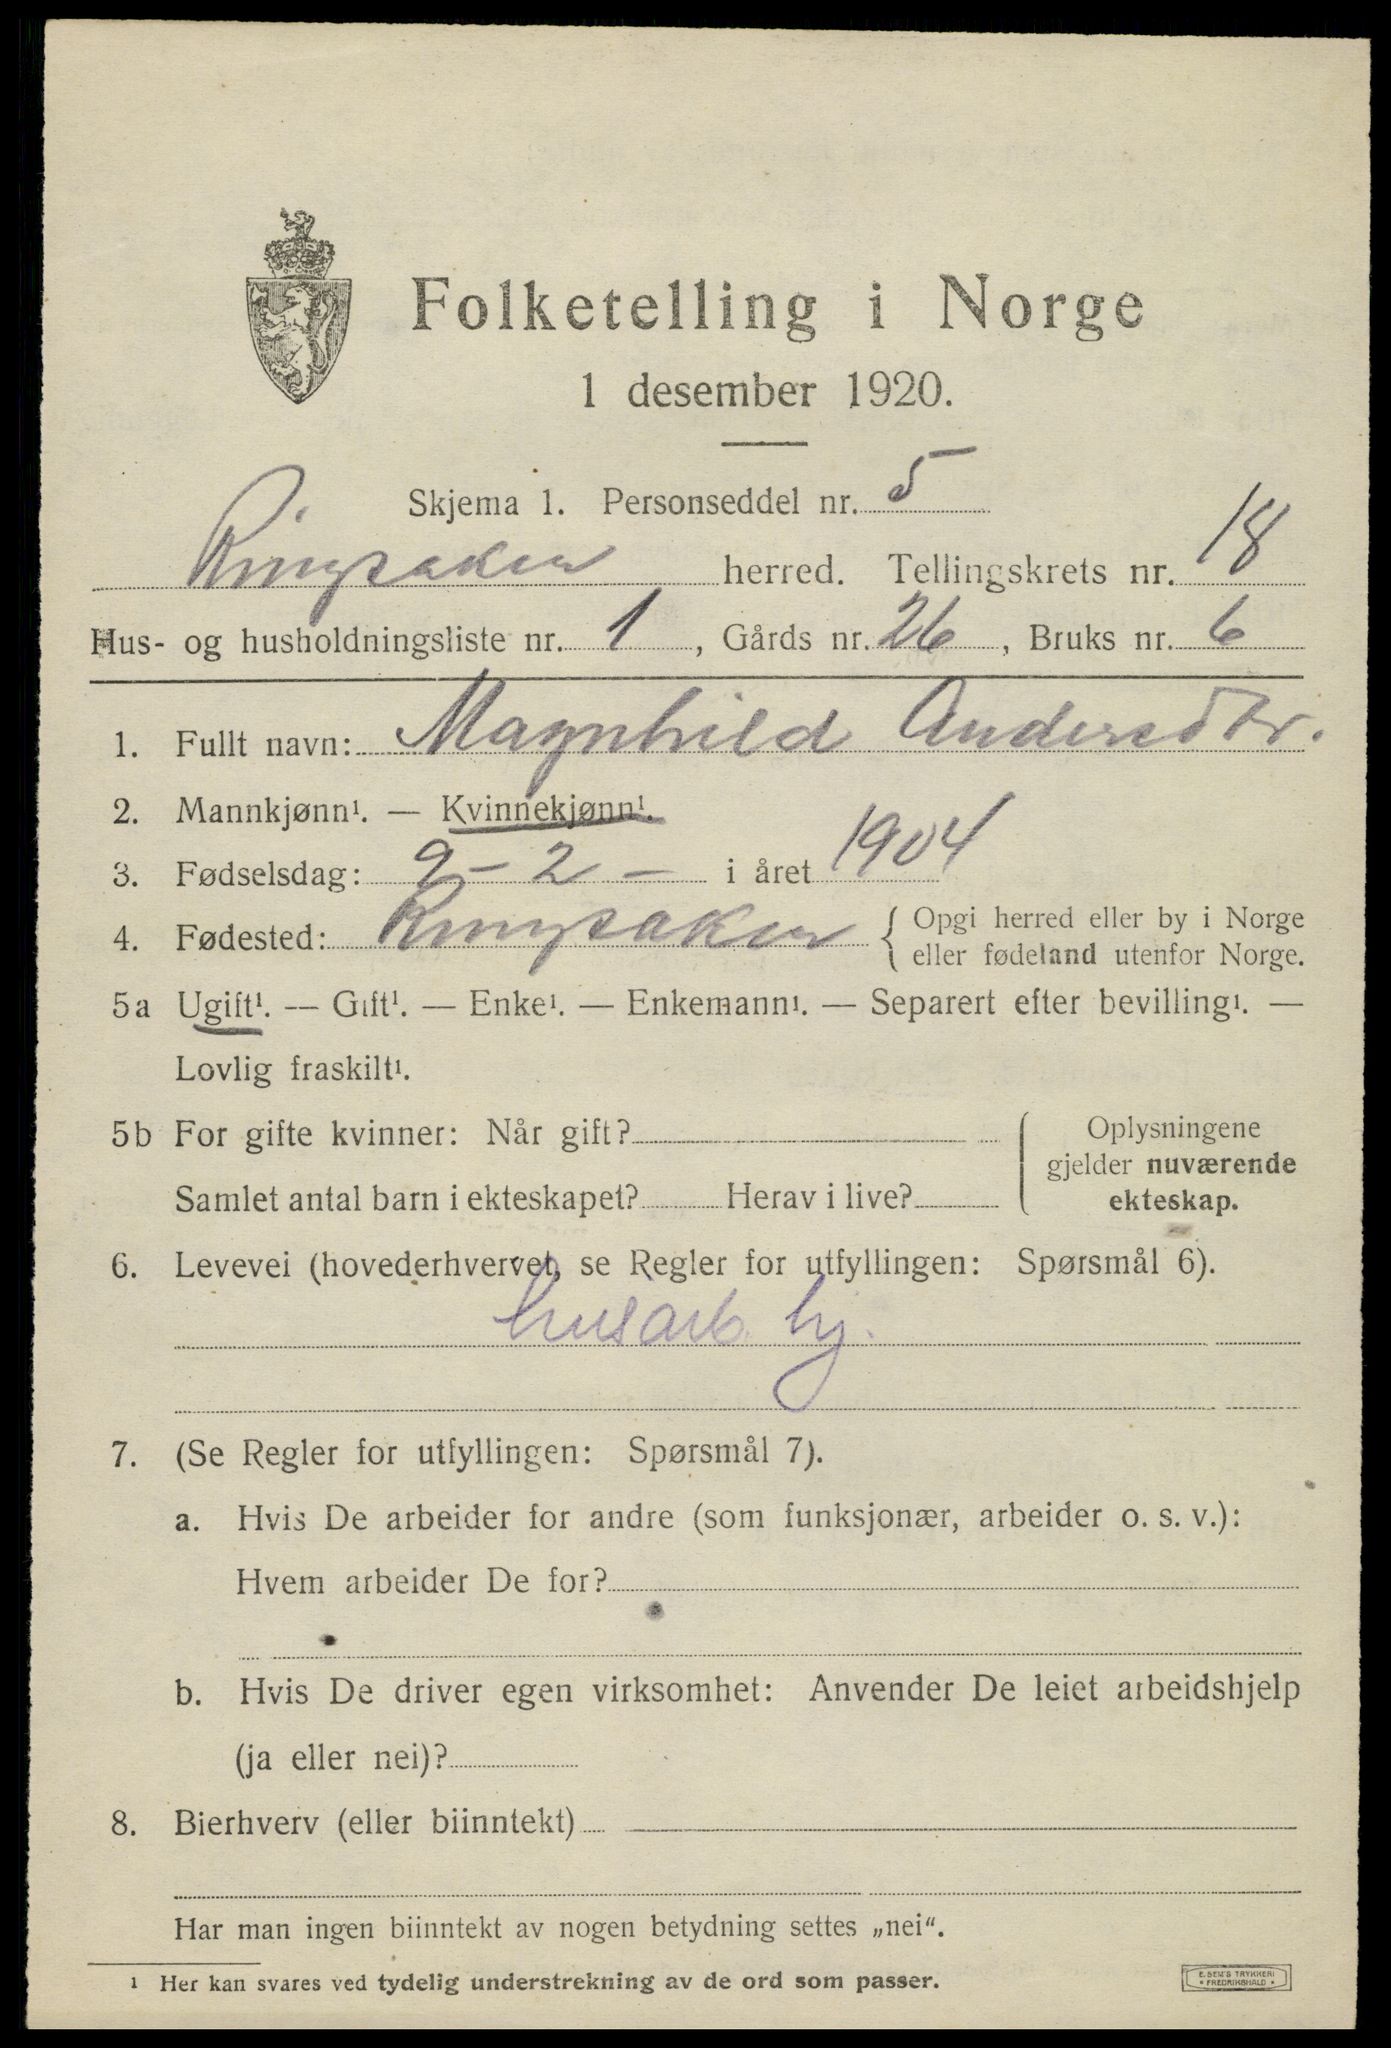 Folketelling i Norge
1 desember 1920.
Skjema 1. Personseddel nr. 5
Ringsaker herred. Tellingskrets nr. 18
Hus- og husholdningsliste nr. 1, Gårds nr. 26, Bruks nr. 6
1. Fullt navn: Magnhild Andersdtr.
2. Mannkjønn¹. — Kvinnekjønn¹.
3. Fødselsdag: 9 - 2 - i året 1904
4. Fødested: Ringsaker { Opgi herred eller by i Norge
eller fødeland utenfor Norge.
5a Ugift¹. — Gift¹. — Enke¹. — Enkemann¹. — Separert efter bevilling¹. —
Lovlig fraskilt¹.
5b For gifte kvinner: Når gift? { Oplysningene
gjelder nuværende
Samlet antal barn i ekteskapet? Herav i live? ekteskap.
6. Levevei (hovederhvervet, se Regler for utfyllingen: Spørsmål 6).
husarb. hj.
7. (Se Regler for utfyllingen: Spørsmål 7).
a. Hvis De arbeider for andre (som funksjonær, arbeider o. s. v.):
Hvem arbeider De for?
b. Hvis De driver egen virksomhet: Anvender De leiet arbeidshjelp
(ja eller nei)?
8. Bierhverv (eller biinntekt)
Har man ingen biinntekt av nogen betydning settes „nei“.
¹ Her kan svares ved tydelig understrekning av de ord som passer.
E. SEM'S TRYKKERI
FREDRIKSHALD